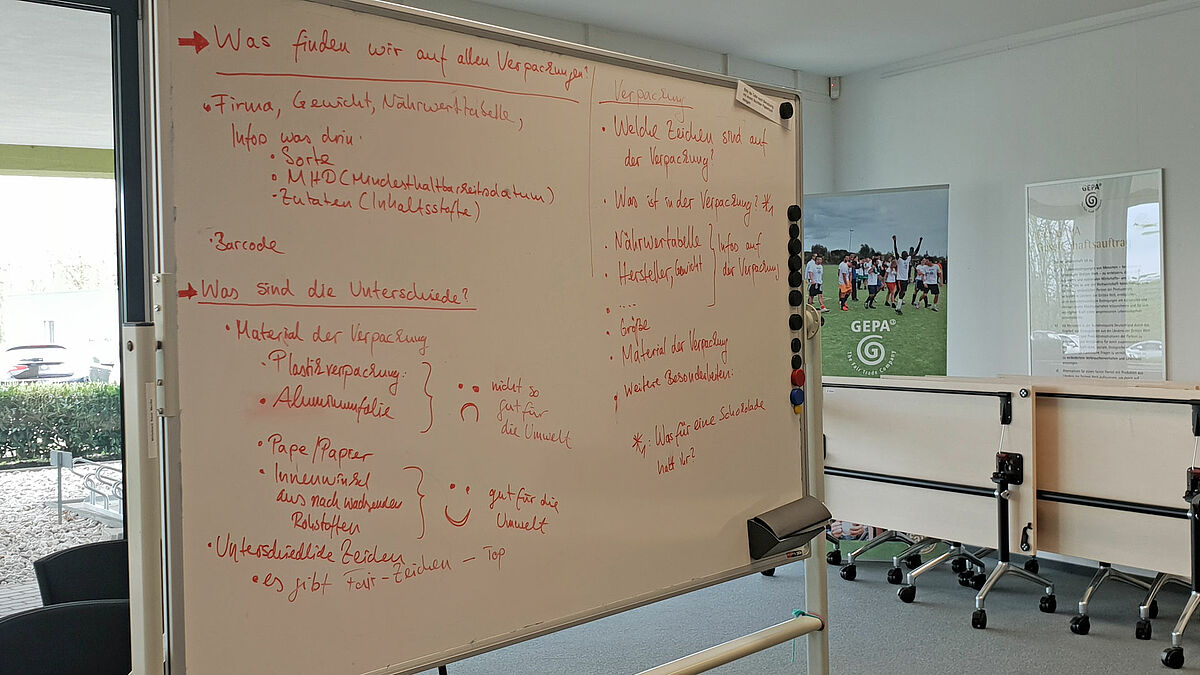 Was finden wir auf allen Verpackungen?
• Firma, Gewicht, Nährwerttabelle,
Infos was drin:
• Sorte
• MHD (Mindesthaltbarkeitsdatum)
- Zutaten (Inhaltsstoffe)
• Barcode
Was sind die Unterschiede?
• Material der Verpackung
• Plastikverpackung:
• Aluminiumfolie
nicht so
gut für
die Umwelt
• Pape/Papier
• Innenwickel
aus nachwachsenden
Rohstoffen
gut für die
Umwelt
• Unterschiedliche Zeichen
• es gibt Fair-Zeichen - Top
Verpackung
• Welche Zeichen sind auf
der Verpackung?
• Was ist in der Verpackung? *1
• Nährwertabelle
• Hersteller, Gewicht
Infos auf
der Verpackung
• ....
• Größe
• Material der Verpackung
• weitere Besonderheiten:
*1: Was für eine Schokolade
habt ihr?
GEPA
The Fair Trade Company
GEPA